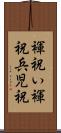 褌祝い褌
祝兵児祝